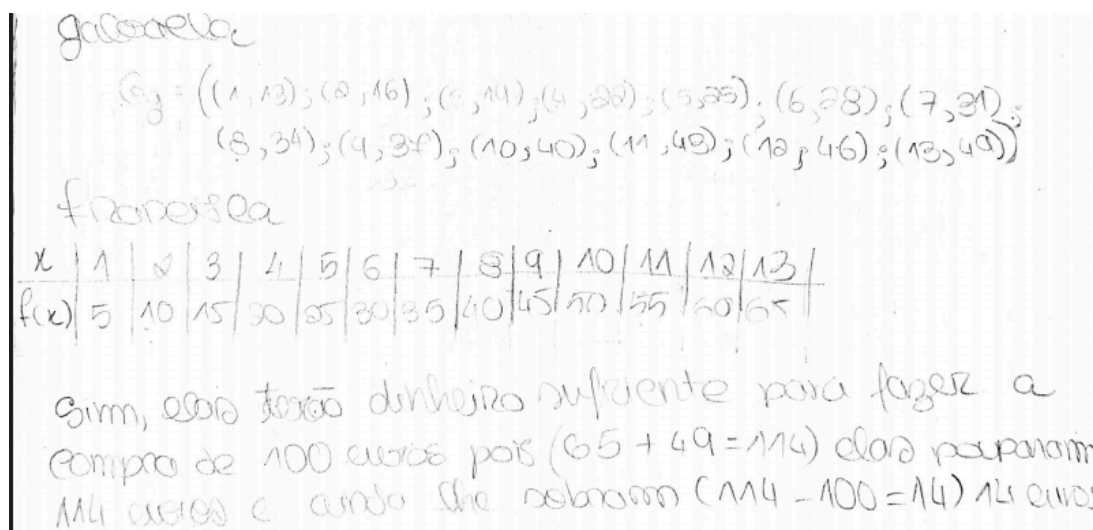 gabriela
Gg = ((1,13); (2,16); (3,19); (4,22); (5,25); (6,28); (7,31);
(8,34); (9,37); (10,40); (11,43); (12,46); (13,49))
francisca
x | 1 | 2 | 3 | 4 | 5 | 6 | 7 | 8 | 9 | 10 | 11 | 12 | 13 |
f(x) | 5 | 10 | 15 | 20 | 25 | 30 | 35 | 40 | 45 | 50 | 55 | 60 | 65 |
Sim, elas terão dinheiro suficiente para fazer a
compra de 100 euros pois (65 + 49 = 114) elas pouparam
114 euros e ainda lhe sobraram (114 - 100 = 14) 14 euros